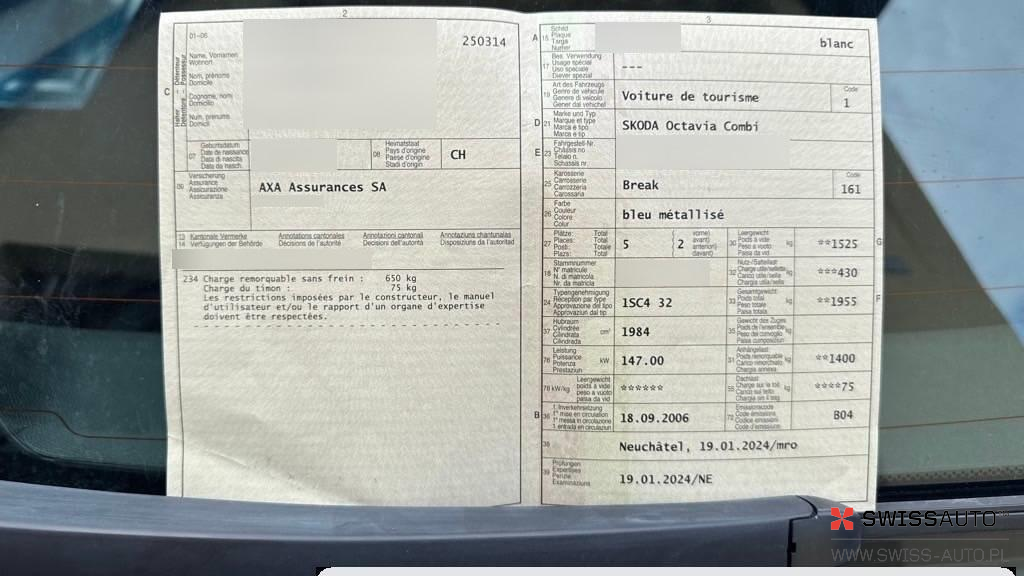 2
01-06
250314
Détenteur
Possessur
Halter
Detentore
C
Name, Vornamen
Wohnort
Nom, prénoms
Domicile
Cognome, nomi
Domicilio
Num, prenums
Domicil
07
Geburtsdatum
Date de naissance
Data di nascita
Data da nasch.
08
Heimatstaat
Pays d'origine
Paese d'origine
Stadi d'origin
CH
09
Versicherung
Assurance
Assicurazione
Assicuranza
AXA Assurances SA
13 Kantonale Vermerke
14 Verfügungen der Behörde
Annotations cantonales
Décisions de l'autorité
Annotazioni cantonali
Decisioni dell'autorità
Annotaziuns chantunalas
Disposiziuns da l'autoritad
234 Charge remorquable sans frein : 650 kg
Charge du timon : 75 kg
Les restrictions imposées par le constructeur, le manuel
d'utilisateur et/ou le rapport d'un organe d'expertise
doivent être respectées.
3
A 15
Schild
Plaque
Targa
Numer
blanc
17
Bes. Verwendung
Usage spécial
Uso speciale
Diever spezial
---
19
Art des Fahrzeugs
Genre de véhicule
Genere di veicolo
Gener dal vehichel
Voiture de tourisme
Code
1
D 21
Marke und Typ
Marque et type
Marca e tipo
Marca e tip
SKODA Octavia Combi
E 23
Fahrgestell-Nr.
Châssis no
Telaio n.
Schassis nr.
25
Karosserie
Carrosserie
Carrozzeria
Carossaria
Break
Code
161
26
Farbe
Couleur
Colore
Colur
bleu métallisé
27
Plätze: Total
Places: Total
Posti: Totale
Plazs: Total
5
( 2
vorne)
avant)
anteriori)
davant)
30
Leergewicht
Poids à vide
Peso a vuoto
Paisa da vid
kg
**1525
G
18
Stammnummer
N° matricule
N. di matricola
Nr. da matricla
32
Nutz-/Sattellast
Charge utile/sellette
Carico utile/sella
kg
***430
24
Typengenehmigung
Réception par type
Approvazione del tipo
Approvaziun dal tip
1SC4 32
33
Gesamtgewicht
Poids total
Peso totale
Paisa totala
kg
**1955
F
37
Hubraum
Cylindrée
Cilindrata
Cilindrada
cm³
1984
35
Gewicht des Zuges
Poids de l'ensemble
Peso del convoglio
Paisa cumposiziun
kg
76
Leistung
Puissance
Potenza
Prestaziun
kW
147.00
31
Anhängelast
Poids remorquable
Carico rimorchiato
Chargia annexa
kg
**1400
78 kW/kg
Leergewicht
poids à vide
peso a vuoto
paisa da vid
******
55
Dachlast
Charge sur le toit
Carico sul tetto
Chargia sin il tetg
kg
****75
B 36
1. Inverkehrsetzung
1re mise en circulation
1a messa in circolazione
1. entrada en circulaziun
18.09.2006
72
Emissionscode
Code émissions
Codice emissioni
Code d'emissiuns
B04
38
Neuchâtel, 19.01.2024/mro
39
Prüfungen
Expertises
Perizie
Examinaziuns
19.01.2024/NE
SWISSAUTO
WWW.SWISS-AUTO.PL